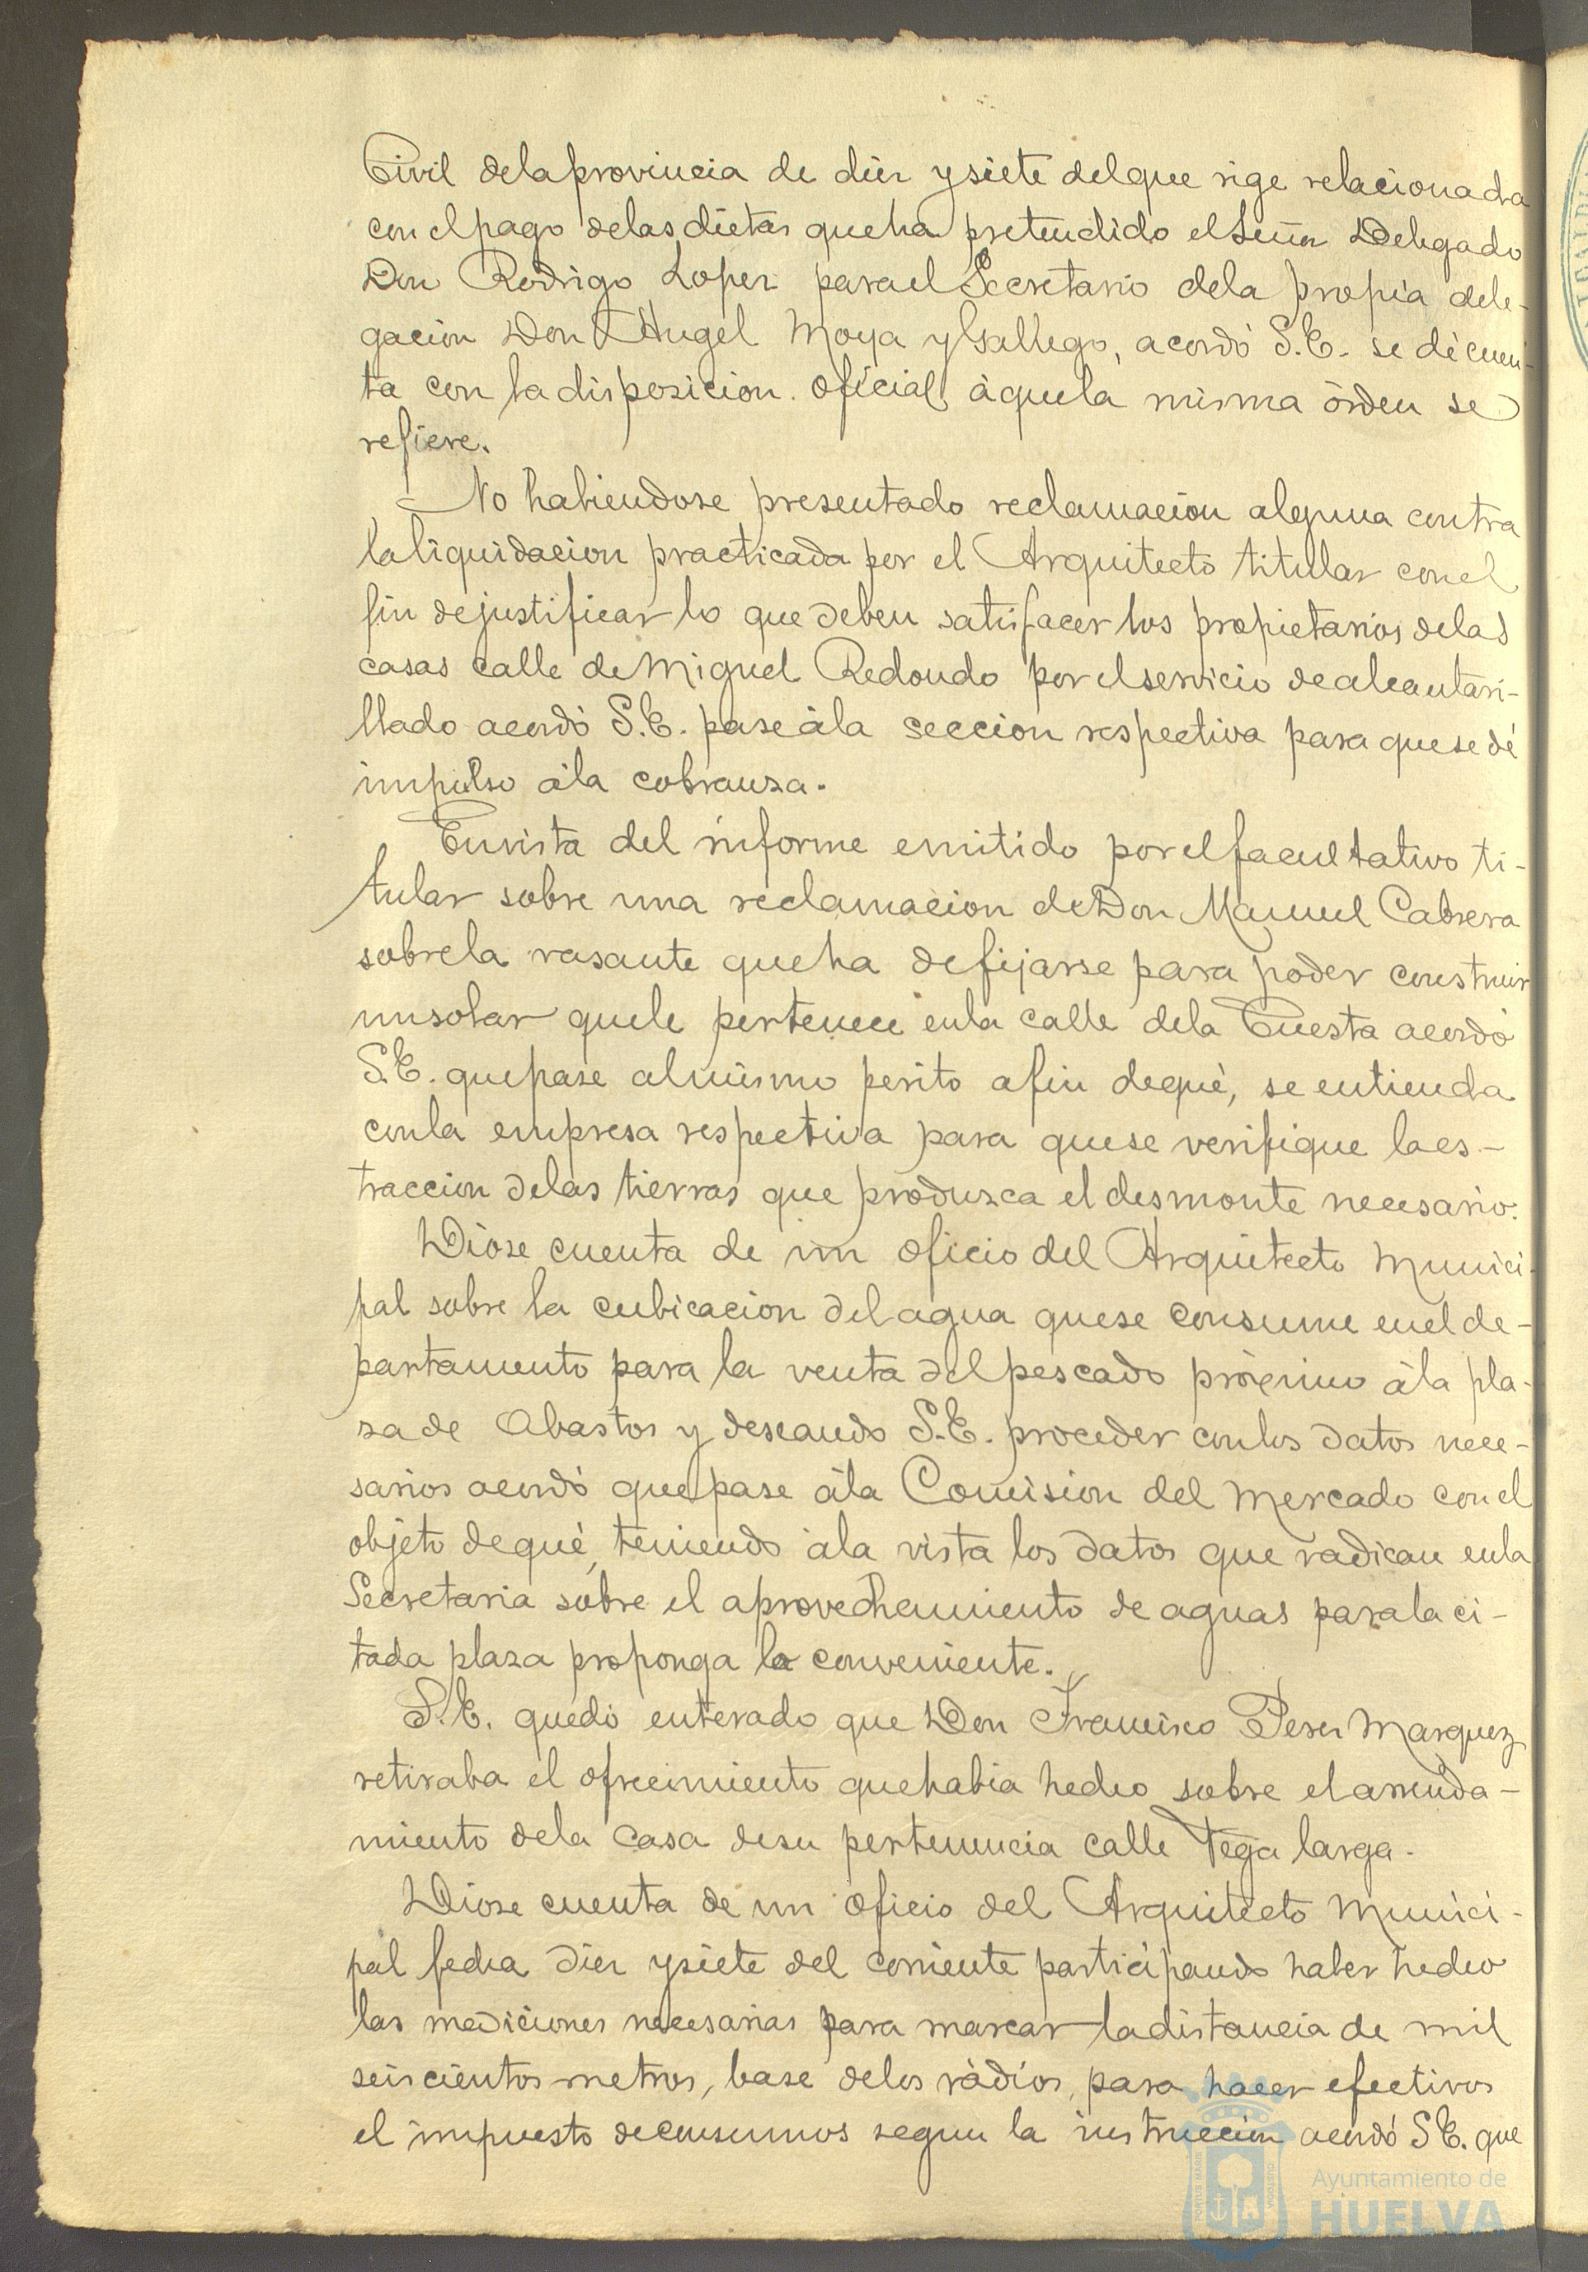 Civil de la provincia de diez y siete del que rige relacionada
con el pago de las dietas que ha pretendido el Señor Delegado
Don Rodrigo Lopez para el Secretario de la propia dele-
gacion Don Angel Moya y Gallego, acordó S.E. se dé cuen-
ta con la disposicion oficial à que la misma òrden se
refiere.
No habiendose presentado reclamacion alguna contra
la liquidacion practicada por el Arquitecto titular con el
fin de justificar lo que deben satisfacer los propietarios de las
casas calle de Miguel Redondo por el servicio de alcantari-
llado acordó S.E. pase à la seccion respectiva para que se dé
impulso à la cobranza.
En vista del informe emitido por el facultativo ti-
tular sobre una reclamacion de Don Manuel Cabrera
sobre la rasante que ha de fijarse para poder construir
un solar que le pertenece en la calle de la Cuesta acordó
S.E. que pase al mismo perito a fin de què, se entienda
con la empresa respectiva para que se verifique la es-
traccion de las tierras que produzca el desmonte necesario.
Diose cuenta de un oficio del Arquitecto Munici-
pal sobre la cubicacion del agua que se consume en el de-
partamento para la venta del pescado pròximo à la pla-
za de Abastos y deseando S.E. proceder con los datos nece-
sarios acordó que pase à la Comision del Mercado con el
objeto de què, teniendo à la vista los datos que radican en la
Secretaria sobre el aprovechamiento de aguas para la ci-
tada plaza proponga lo conveniente.
S.E. quedó enterado que Don Francisco Perez Marquez
retiraba el ofrecimiento que habia hecho sobre el arrenda-
miento de la casa de su pertenencia calle Vega larga.
Diose cuenta de un oficio del Arquitecto Munici-
pal fecha diez y siete del corriente participando haber hecho
las mediciones necesarias para marcar la distancia de mil
seiscientos metros, base de los ràdios, para hacer efectivos
el impuesto de consumos segun la instruccion acordó S.E. que
Ayuntamiento de
HUELVA